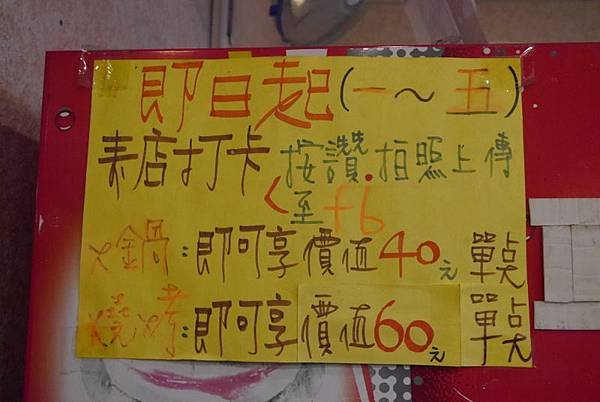 即日起(一～五)
來店打卡 按讚.拍照上傳
至fb
火鍋:即可享價值40元 單点
燒烤:即可享價值60元 單点